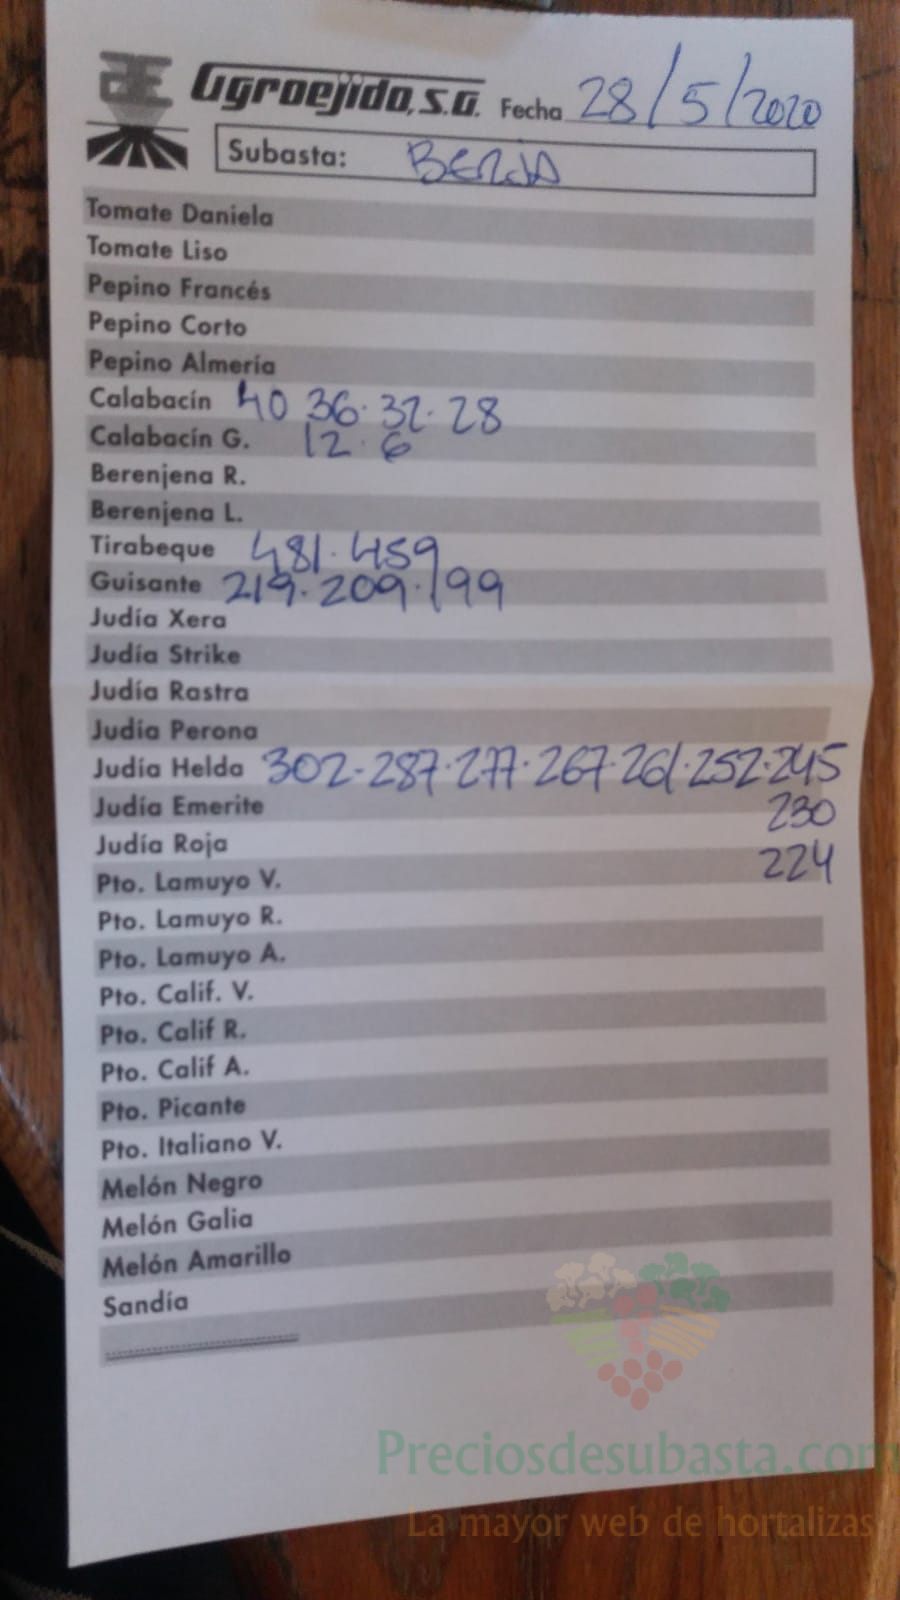 Agroejido, S.A. Fecha 28/5/2020
Subasta: BERJA
Tomate Daniela
Tomate Liso
Pepino Francés
Pepino Corto
Pepino Almería
Calabacín 40 36. 32. 28
Calabacín G. 12. 6
Berenjena R.
Berenjena L.
Tirabeque 481. 459
Guisante 219. 209. 199
Judía Xera
Judía Strike
Judía Rastra
Judía Perona
Judía Helda 302. 287. 277. 267. 261. 252. 245
Judía Emerite 230
Judía Roja 224
Pto. Lamuyo V.
Pto. Lamuyo R.
Pto. Lamuyo A.
Pto. Calif. V.
Pto. Calif R.
Pto. Calif A.
Pto. Picante
Pto. Italiano V.
Melón Negro
Melón Galia
Melón Amarillo
Sandía
Preciosdesubasta.com
La mayor web de hortalizas